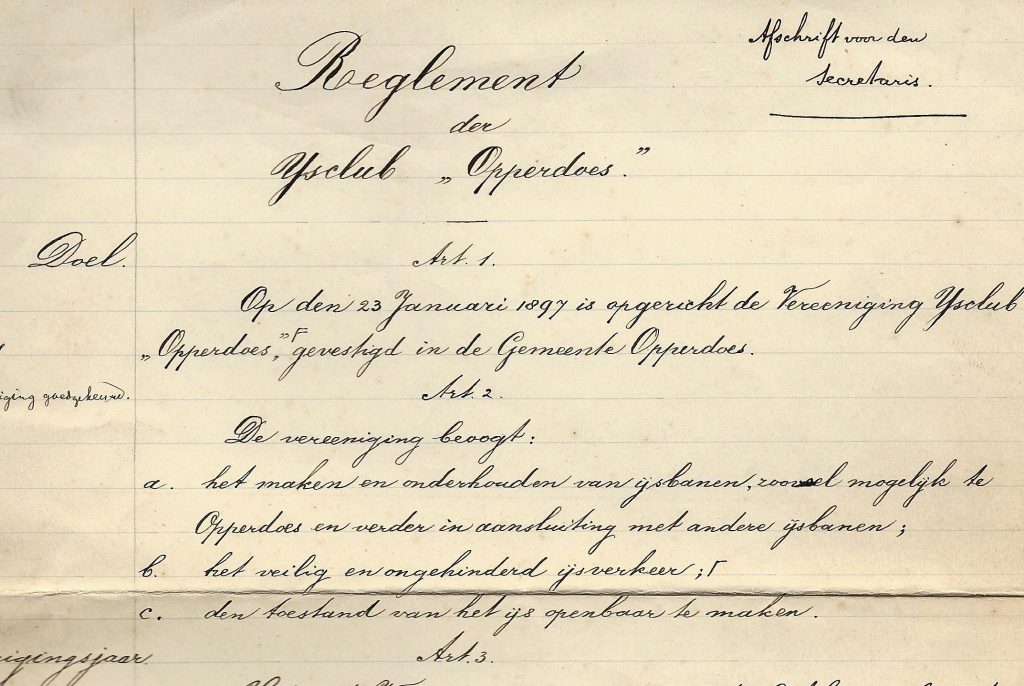 Afschrift voor den
secretaris.
Reglement
der
Ysclub „Opperdoes.”
Doel.
Art. 1.
Op den 23 Januari 1897 is opgericht de Vereeniging Ysclub
„Opperdoes,” gevestigd in de Gemeente Opperdoes.
goedgekeurd.
Art. 2.
De vereeniging beoogt:
a. het maken en onderhouden van ijsbanen, zooveel mogelijk te
Opperdoes en verder in aansluiting met andere ijsbanen;
b. het veilig en ongehinderd ijsverkeer;
c. den toestand van het ijs openbaar te maken.
Art. 3.